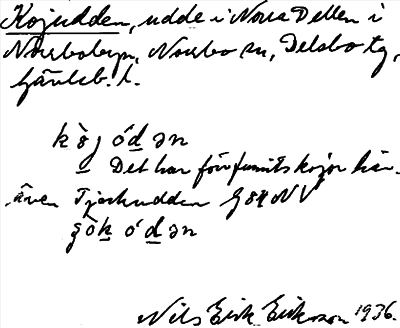 Kojudden, udde i Norra Dellen i
Norrboby, Norrbo sn, Delsbo tg,
Gävleb. l.
kòj óden
Det har förr funnits kojor här.
även Tjockudden G 8 H NV
Nils Erik Eriksson 1936.